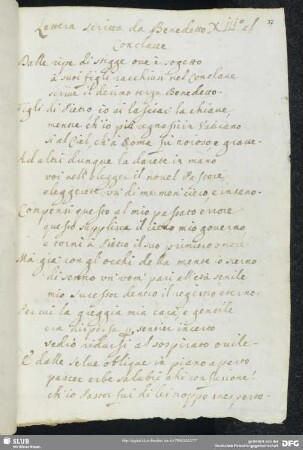 37
Lettera scritta da Benedetto XIII.o al
Conclave
Dalle ripe di stigge ove è sogetto
à suoi figli racchiusi nel Conclave
scrive il decimo terzo Benedetto
Figli di Pietro io vi lasciai la chiave,
mentre ch'io più regnassi in Vaticano
si al Ciel, ch'à Roma fù noioso e grave
Ad altri dunque la darete in mano
voi nell'elegger il novel Pastore
eleggerete un di me men cieco, e insano.
Compensi questo al mio passato errore
questo supplisca il mio governo
e torni à Pietro il suo primiero onore
Mà già con gl'occhi de la mente io scerno
di senno un' vom' pari all'età senile
mio sucessor dentro il regesto eterno.
Per cui la greggia mia cara, e gentile
era dispersa p. sentier incerto
vedrò ridursi al sospirato ovile
E dalle selve oblique in piano aperto
pascer erbe salubri ahi confusione!
ch'io Pastor fui di lei troppo inesperto.
SLUB
Wir führen Wissen.
gefördert von der
Deutschen Forschungsgemeinschaft